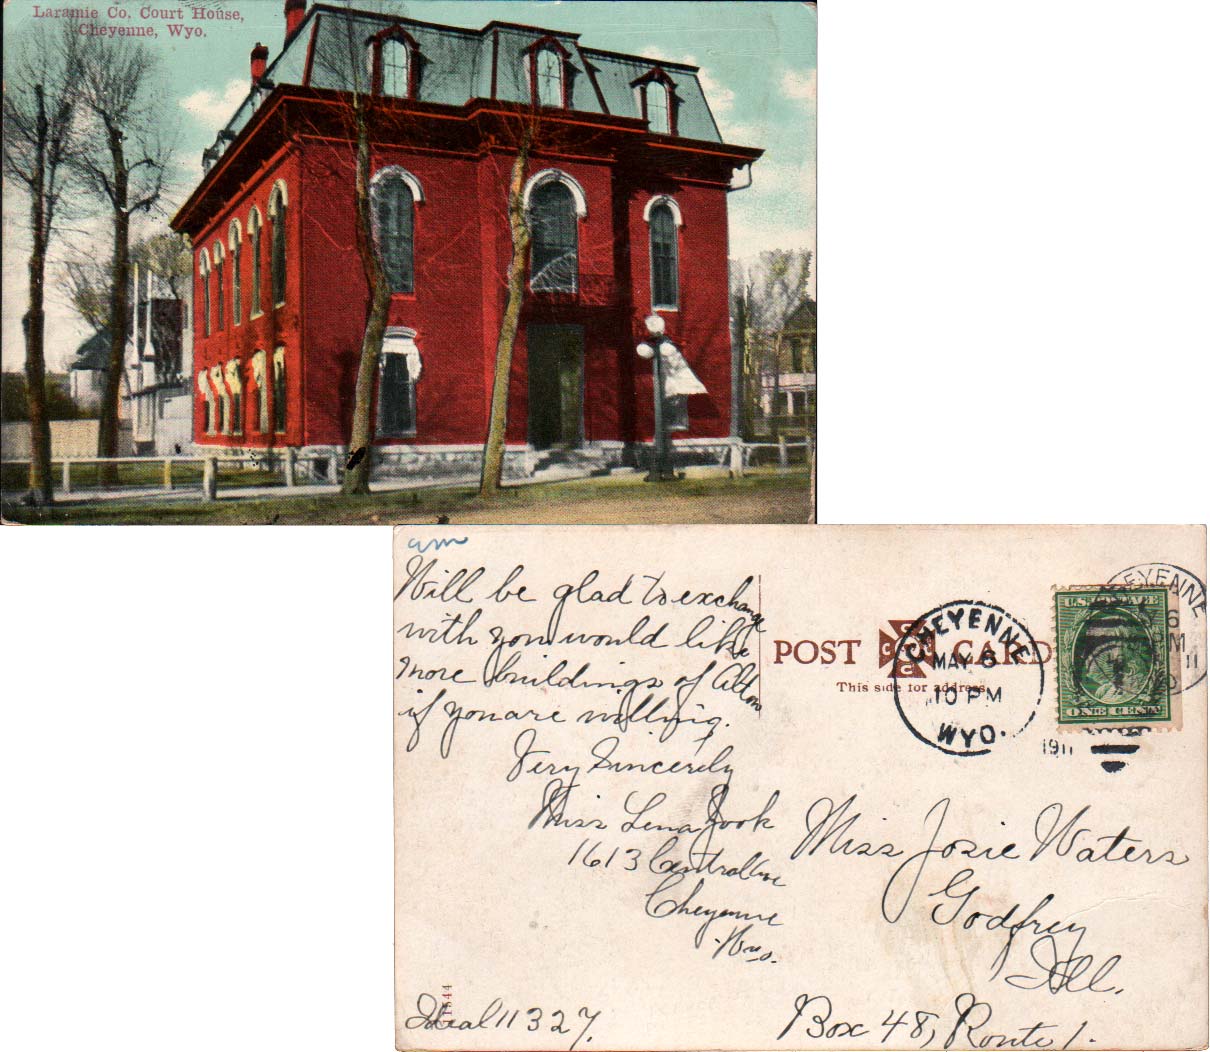 Laramie Co. Court House,
Cheyenne, Wyo.
am
Will be glad to exchange
with you would like
more buildings of Alton
if you are willing.
Very Sincerely
Miss Lena Zook
1613 Central Ave
Cheyenne
Wyo.
Ideal 11327.
POST CARD
This side for address.
CHEYENNE
MAY 6
10 PM
WYO.
1911
CHEYENNE
6
PM
11
U.S. POSTAGE
ONE CENT
Miss Josie Waters
Godfrey
Ill.
Box 48, Route 1.